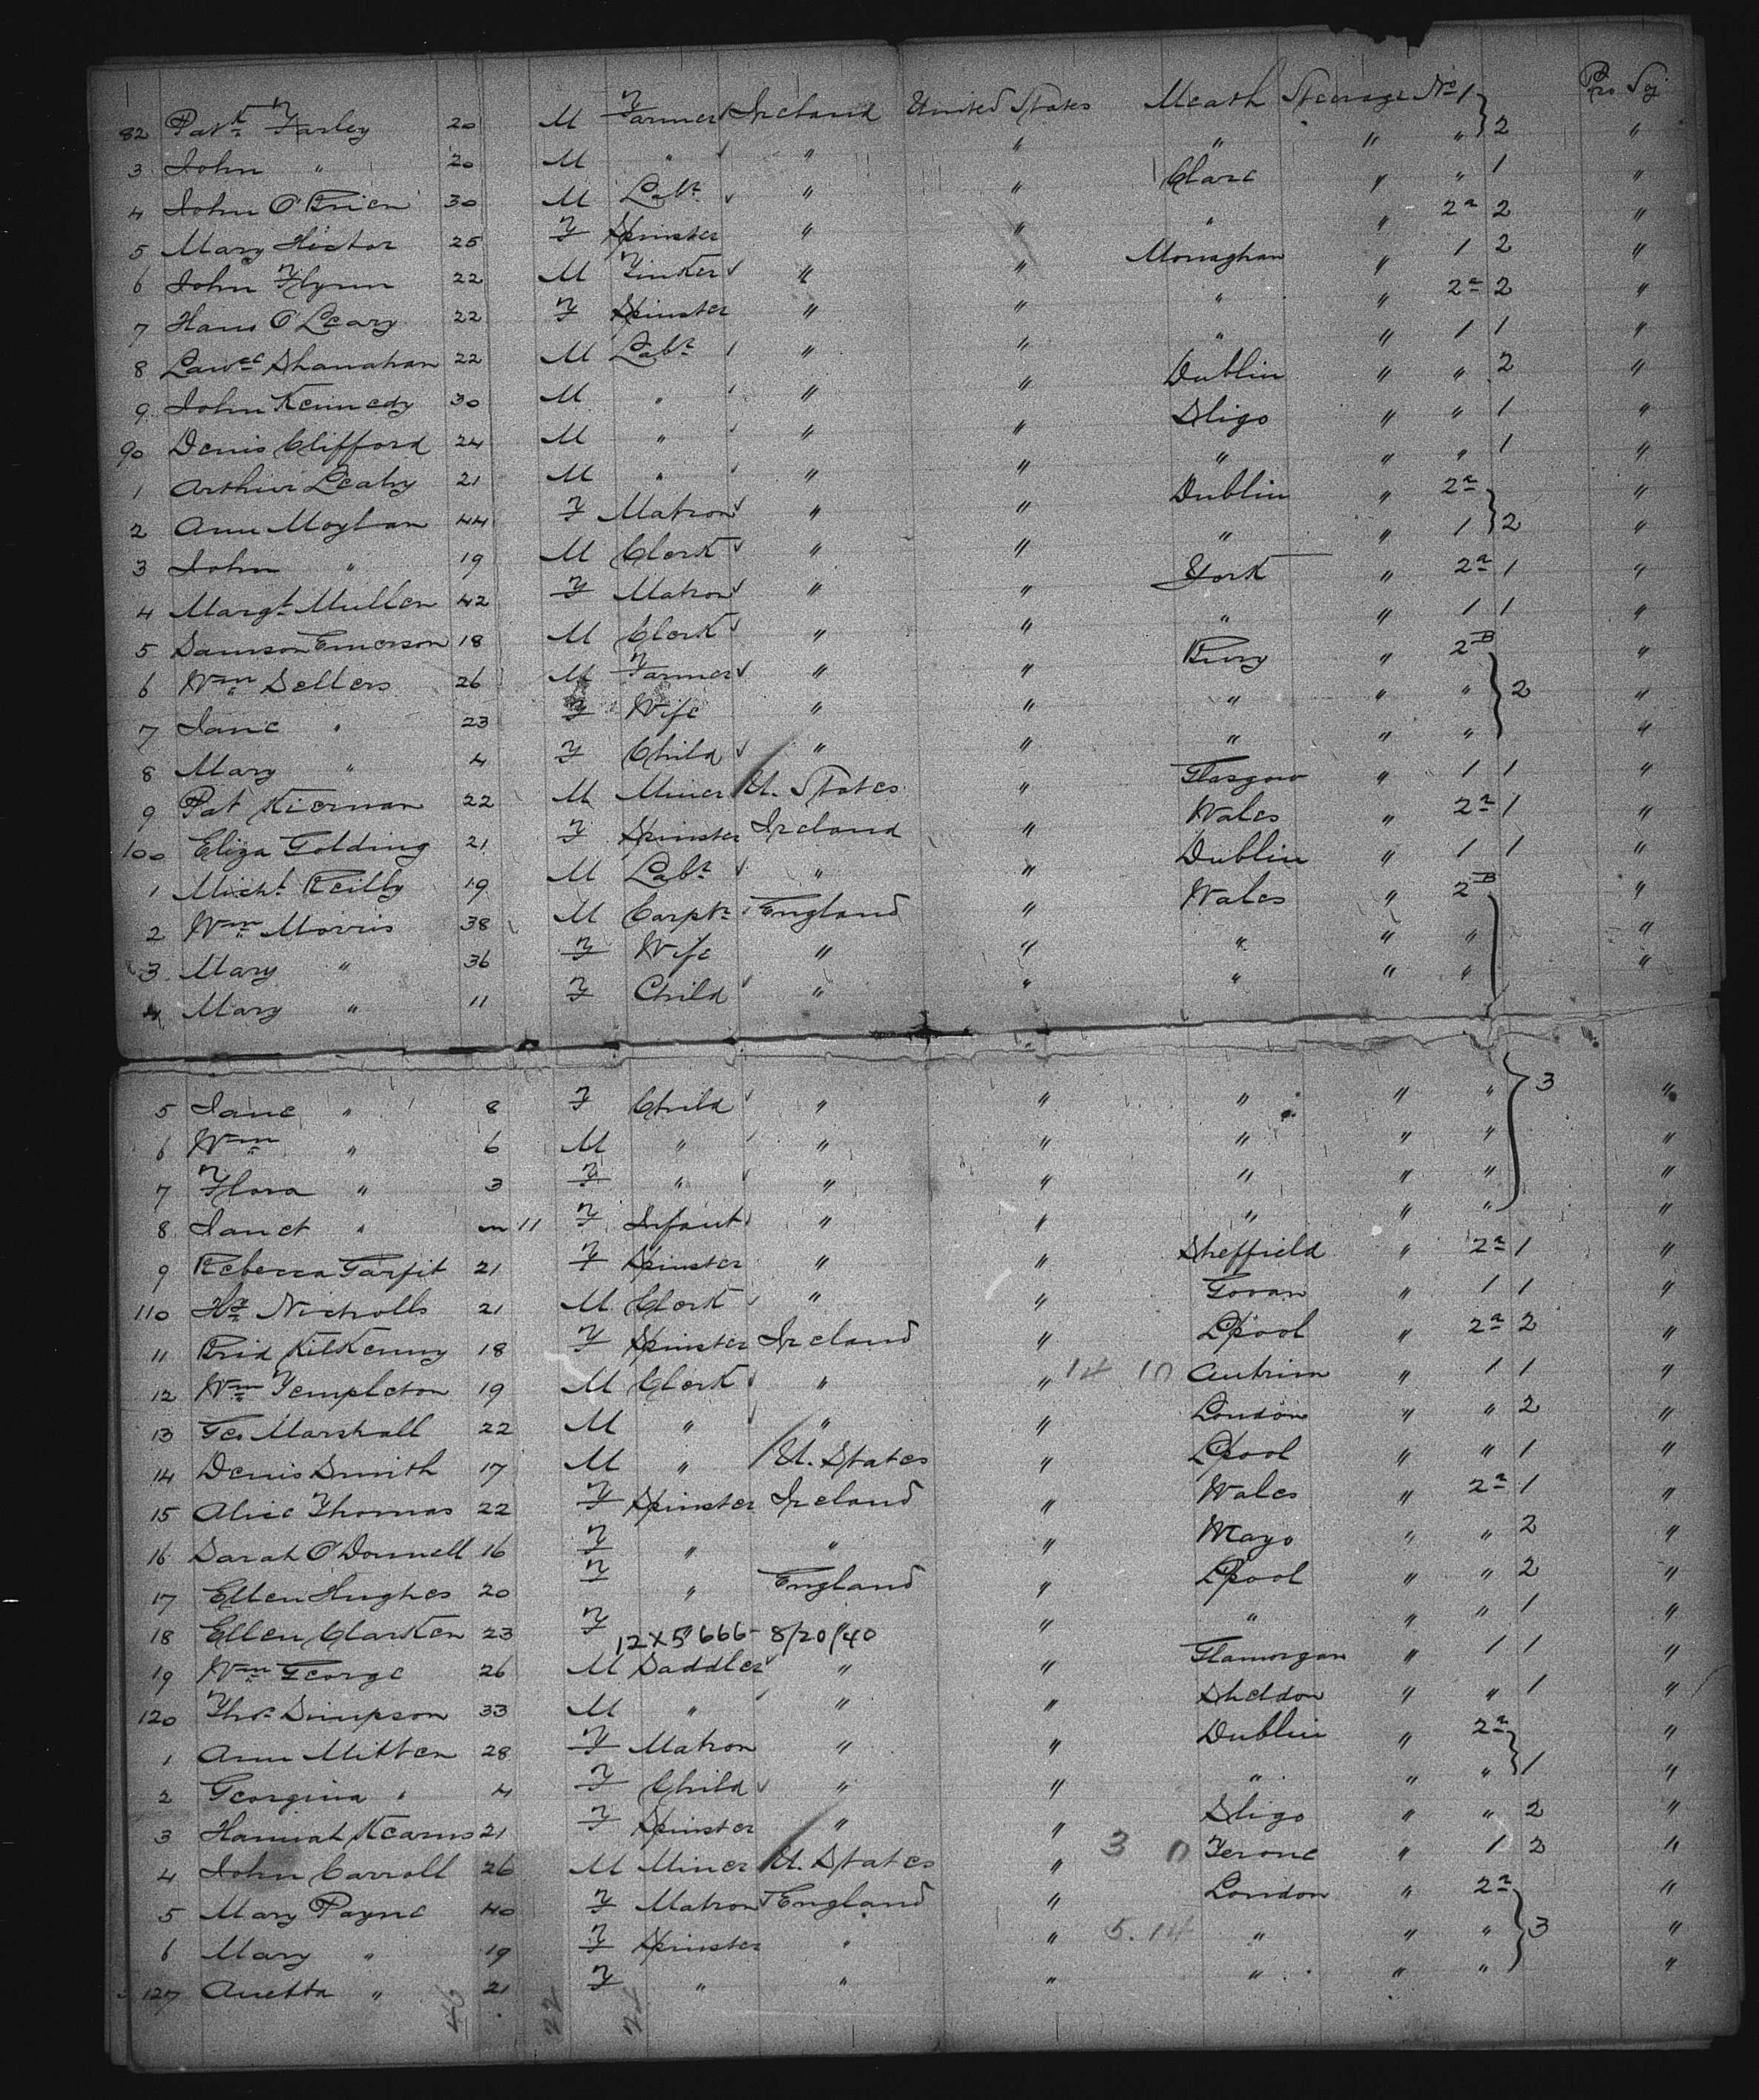 82 Patk Farley 20 M Farmer Ireland United States Meath Steerage No 1 } Pro Soj
3 John " 20 M " " " " " " 2 "
4 John O'Brien 30 M Labr " " Clare " " 1 "
5 Mary Hector 25 F Spinster " " " " 2a 2 "
6 John Flynn 22 M Tinker " " Monaghan " 1 2 "
7 O'Leary 22 F Spinster " " " " 2a 2 "
8 Lawce Shanahan 22 M Labr " " " " 1 1 "
9 John Kennedy 30 M " " " Dublin " " 2 "
90 Denis Clifford 24 M " " " Sligo " " 1 "
1 Arthur Leahy 21 M " " " " " " 1 "
2 Ann Moylan 44 F Matron " " Dublin " 2a } "
3 John " 19 M Clerk " " " " 1 2 "
4 Margt Mullen 42 F Matron " " York " 2a 1 "
5 Samson Emerson 18 M Clerk " " " " 1 1 "
6 Wm Sellers 26 M Farmer " " Bury " 2B } "
7 Jane " 23 F Wife " " " " " 2 "
8 Mary " 4 F Child " " " " " "
9 Pat Kiernan 22 M Miner U. States " Glasgow " 1 1 "
100 Eliza Golding 21 F Spinster Ireland " Wales " 2a 1 "
1 Michl Reilly 19 M Labr " " Dublin " 1 1 "
2 Wm Morris 38 M Carptr England " Wales " 2B } "
3 Mary " 36 F Wife " " " " " "
4 Mary " 11 F Child " " " " " "
5 Jane " 8 F Child " " " " " } 3 "
6 Wm " 6 M " " " " " " "
7 Flora " 3 F " " " " " " "
8 Janet " m 11 F Infant " " " " " "
9 Rebecca Tarfit 21 F Spinster " " Sheffield " 2a 1 "
110 Hy Nicholls 21 M Clerk " " Govan " 1 1 "
11 Brid Kilkenny 18 F Spinster Ireland " Lpool " 2a 2 "
12 Wm Templeton 19 M Clerk " " 14 10 Antrim " 1 1 "
13 Geo Marshall 22 M " " " London " " 2 "
14 Denis Smith 17 M " U. States " Lpool " " 1 "
15 Alice Thomas 22 F Spinster Ireland " Wales " 2a 1 "
16 Sarah O'Donnell 16 F " " " Mayo " " 2 "
17 Ellen Hughes 20 F " England " Lpool " " 2 "
18 Ellen Clarken 23 F " " " " " " 1 "
12X5666- 8/20/40
19 Wm George 26 M Saddler " " Glamorgan " 1 1 "
120 Thos Simpson 33 M " " " Sheldon " " 1 "
1 Ann Mitten 28 F Matron " " Dublin " 2a } "
2 Georgina " 4 F Child " " " " " 1 "
3 Hannah Kearns 21 F Spinster " " Sligo " " 2 "
4 John Carroll 26 M Miner U. States " 3 0 Tyrone " 1 2 "
5 Mary Payne 40 F Matron England " London " 2a } "
6 Mary " 19 F Spinster " " 5.14 " " " 3 "
127 Anetta " 21 F " " " " " " "
46 22 24